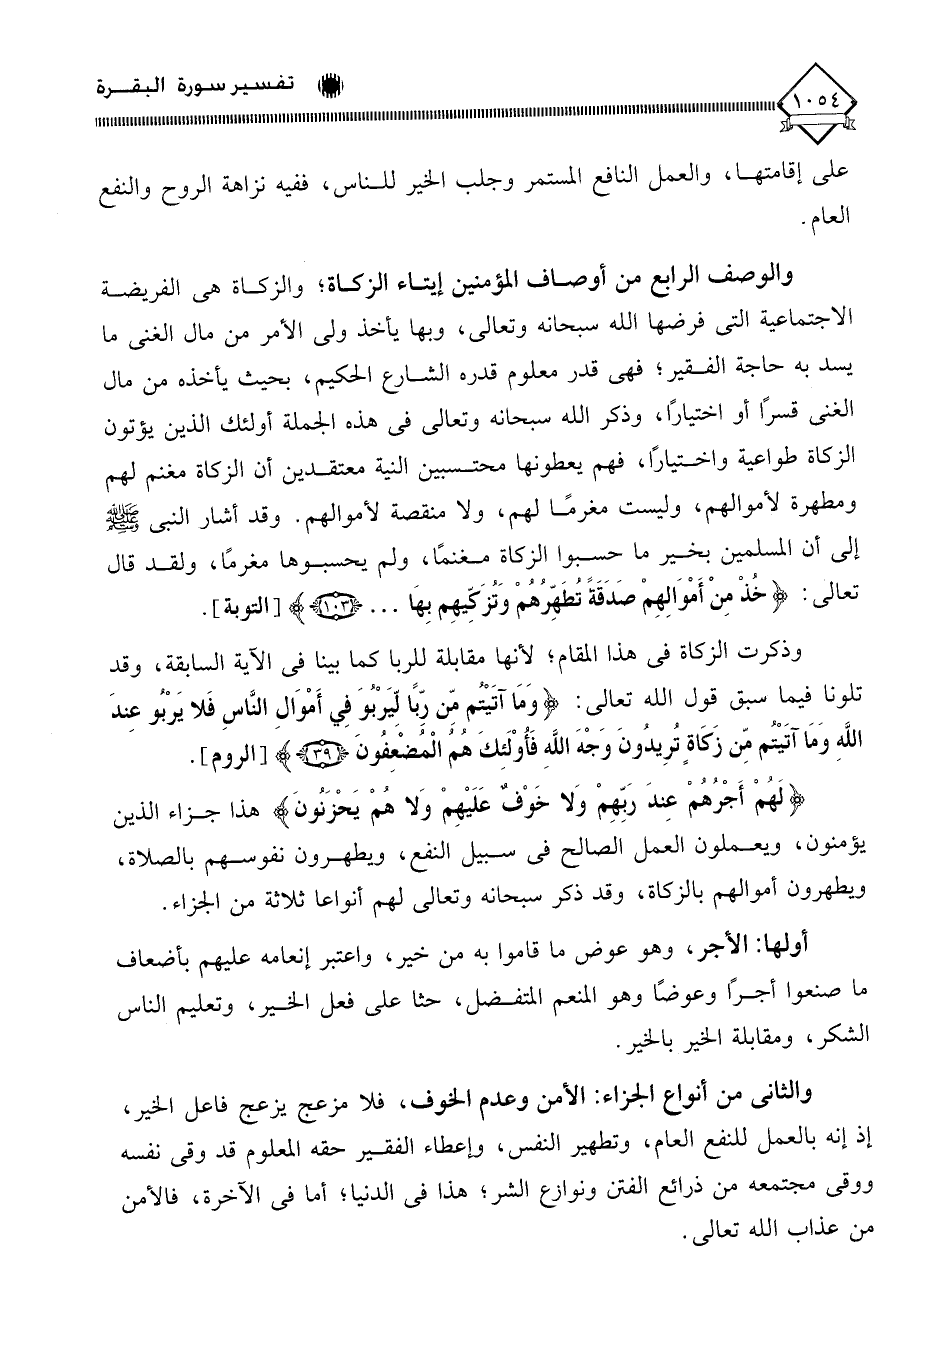 تفسير سورة البقرة
١٠٥٤
على إقامتها، والعمل النافع المستمر وجلب الخير للناس، ففيه نزاهة الروح والنفع
العام.
والوصف الرابع من أوصاف المؤمنين إيتاء الزكاة؛ والزكاة هى الفريضة
الاجتماعية التى فرضها الله سبحانه وتعالى، وبها يأخذ ولى الأمر من مال الغنى ما
يسد به حاجة الفقير؛ فهى قدر معلوم قدره الشارع الحكيم، بحيث يأخذه من مال
الغنى قسرًا أو اختيارًا، وذكر الله سبحانه وتعالى فى هذه الجملة أولئك الذين يؤتون
الزكاة طواعية واختيارًا، فهم يعطونها محتسبين النية معتقدين أن الزكاة مغنم لهم
ومطهرة لأموالهم، وليست مغرمًا لهم، ولا منقصة لأموالهم. وقد أشار النبى ﷺ
إلى أن المسلمين بخير ما حسبوا الزكاة مغنمًا، ولم يحسبوها مغرمًا، ولقد قال
تعالى: ﴿خُذْ مِنْ أَمْوَالِهِمْ صَدَقَةً تُطَهِّرُهُمْ وَتُزَكِّيهِم بِهَا ... ﴿١٠٣﴾﴾ [التوبة].
وذكرت الزكاة فى هذا المقام؛ لأنها مقابلة للربا كما بينا فى الآية السابقة، وقد
تلونا فيما سبق قول الله تعالى: ﴿وَمَا آتَيْتُم مِّن رِّبًا لِّيَرْبُوَ فِي أَمْوَالِ النَّاسِ فَلا يَرْبُو عِندَ
اللَّهِ وَمَا آتَيْتُم مِّن زَكَاةٍ تُرِيدُونَ وَجْهَ اللَّهِ فَأُوْلَئِكَ هُمُ الْمُضْعِفُونَ ﴿٣٩﴾﴾ [الروم].
﴿لَهُمْ أَجْرُهُمْ عِندَ رَبِّهِمْ وَلا خَوْفٌ عَلَيْهِمْ وَلا هُمْ يَحْزَنُونَ﴾ هذا جزاء الذين
يؤمنون، ويعملون العمل الصالح فى سبيل النفع، ويطهرون نفوسهم بالصلاة،
ويطهرون أموالهم بالزكاة، وقد ذكر سبحانه وتعالى لهم أنواعا ثلاثة من الجزاء.
أولها: الأجر، وهو عوض ما قاموا به من خير، واعتبر إنعامه عليهم بأضعاف
ما صنعوا أجرًا وعوضًا وهو المنعم المتفضل، حثا على فعل الخير، وتعليم الناس
الشكر، ومقابلة الخير بالخير.
والثانى من أنواع الجزاء: الأمن وعدم الخوف، فلا مزعج يزعج فاعل الخير،
إذ إنه بالعمل للنفع العام، وتطهير النفس، وإعطاء الفقير حقه المعلوم قد وقى نفسه
ووقى مجتمعه من ذرائع الفتن ونوازع الشر؛ هذا فى الدنيا؛ أما فى الآخرة، فالأمن
من عذاب الله تعالى.